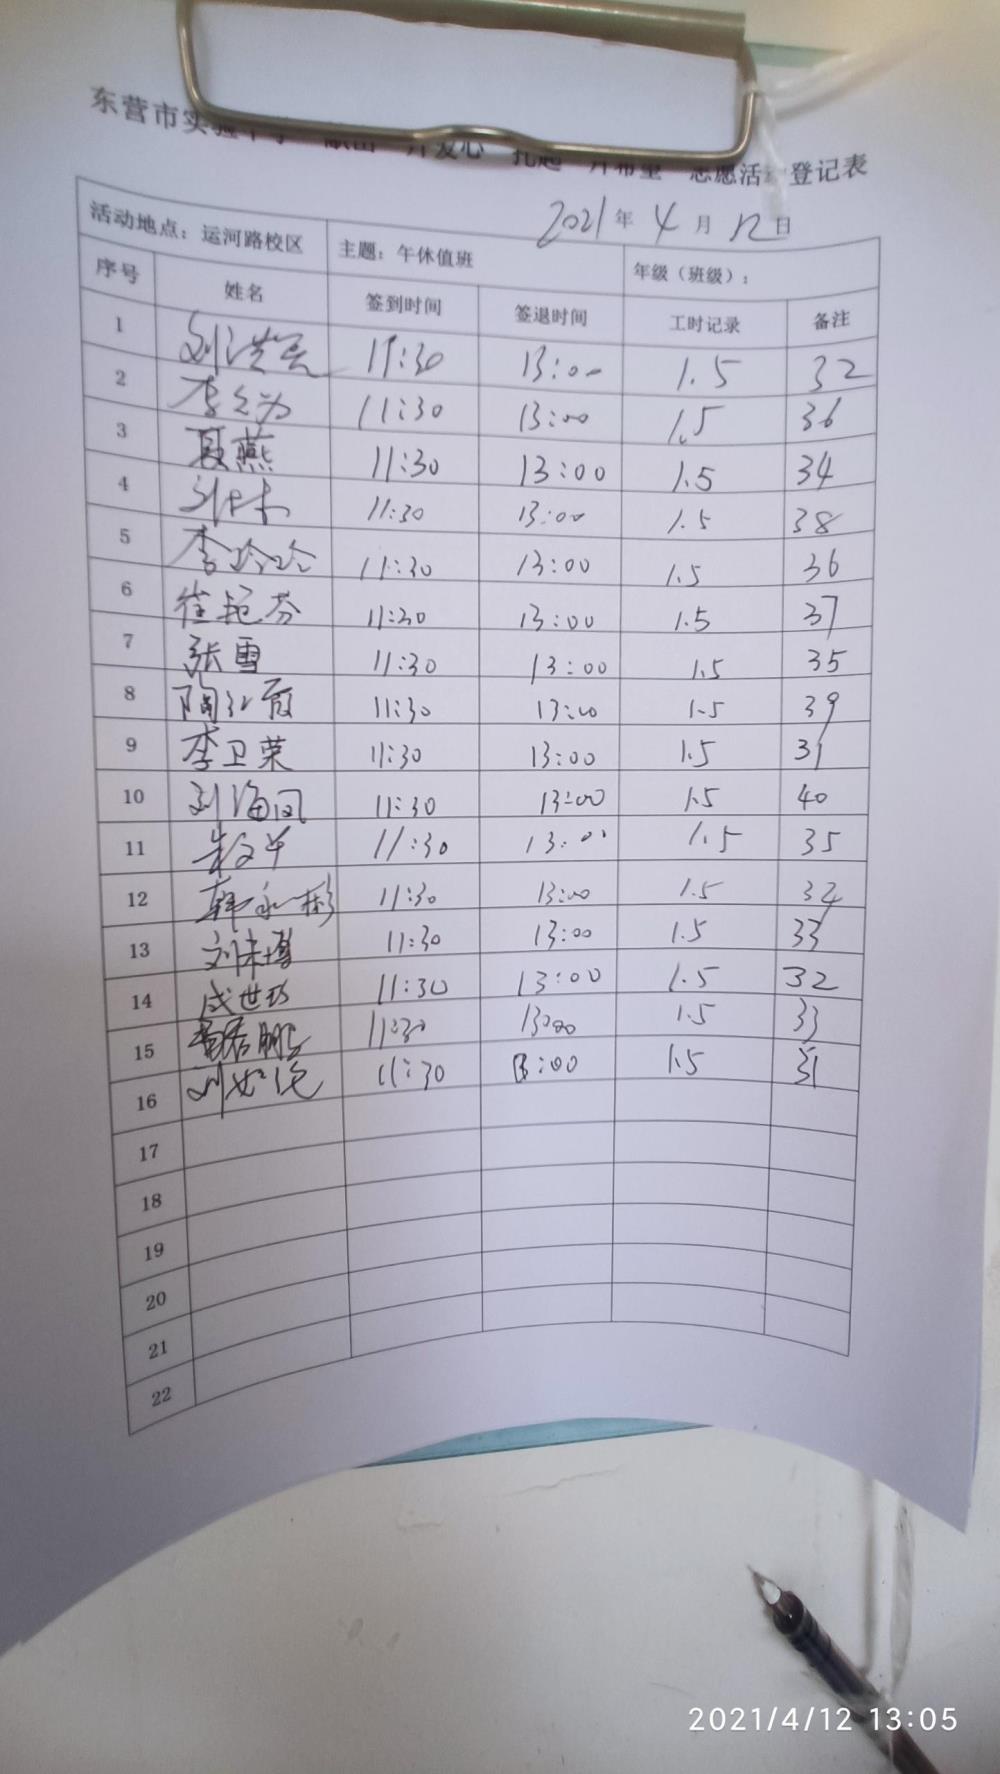 东营市实验中学 献出一片爱心 托起一片希望 志愿活动登记表
2021年 4月 12日
活动地点：运河路校区 主题：午休值班 年级（班级）：
序号 姓名 签到时间 签退时间 工时记录 备注
1 刘洪 11:30 13:00 1.5 32
2 李 11:30 13:00 1.5 36
3 聂燕 11:30 13:00 1.5 34
4 11:30 13:00 1.5 38
5 李玲玲 11:30 13:00 1.5 36
6 崔艳芬 11:30 13:00 1.5 37
7 张雪 11:30 13:00 1.5 35
8 陶红霞 11:30 13:00 1.5 39
9 李卫荣 11:30 13:00 1.5 31
10 刘海凤 11:30 13:00 1.5 40
11 11:30 13:00 1.5 35
12 韩永彬 11:30 13:00 1.5 34
13 刘 11:30 13:00 1.5 33
14 成世巧 11:30 13:00 1.5 32
15 11:30 13:00 1.5 33
16 刘 11:30 13:00 1.5 31
17
18
19
20
21
22
2021/4/12 13:05